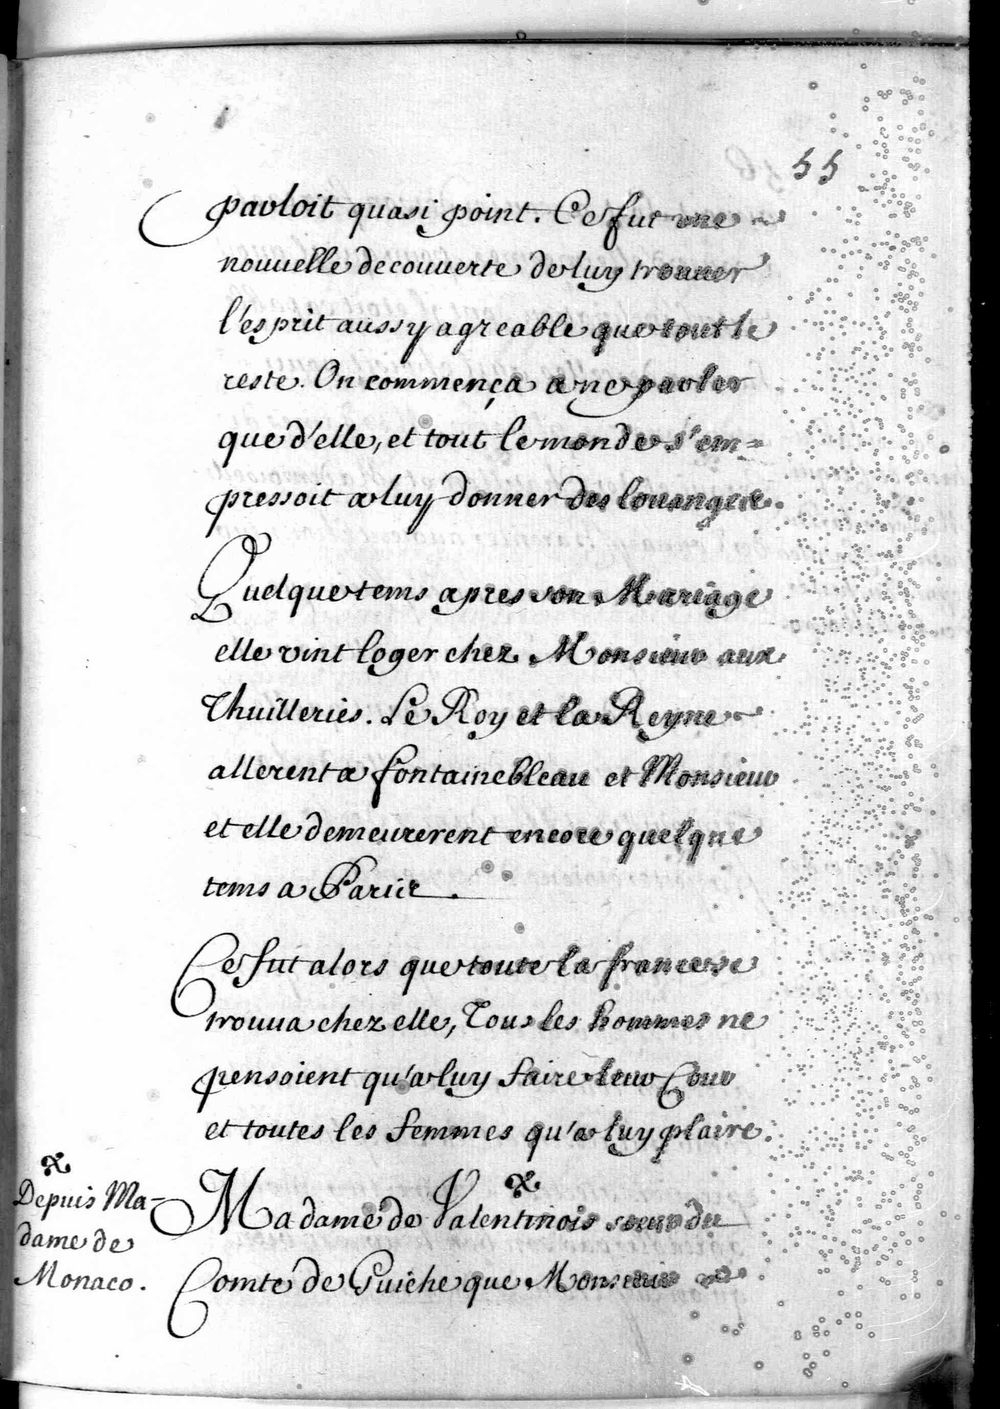 55
parloit quasi point. Ce fut une
nouuelle decouuerte de luy trouuer
l'esprit aussy agreable que tout le
reste. On commença a ne parler
que d'elle, et tout le monde s'em=
pressoit a luy donner des louanges.
Quelque tems apres son Mariage
elle vint loger chez Monsieur aux
Thuilleries. Le Roy et la Reyne
allerent a fontainebleau et Monsieur
et elle demeurerent encore quelque
tems a Paris.
Ce fut alors que toute la france se
trouua chez elle, Tous les hommes ne
pensoient qu'a luy faire leur Cour
et toutes les femmes qu'a luy plaire.
Madame de Valentinois sœur du
Comte de Guiche que Monsieur
Depuis Ma=
dame de
Monaco.